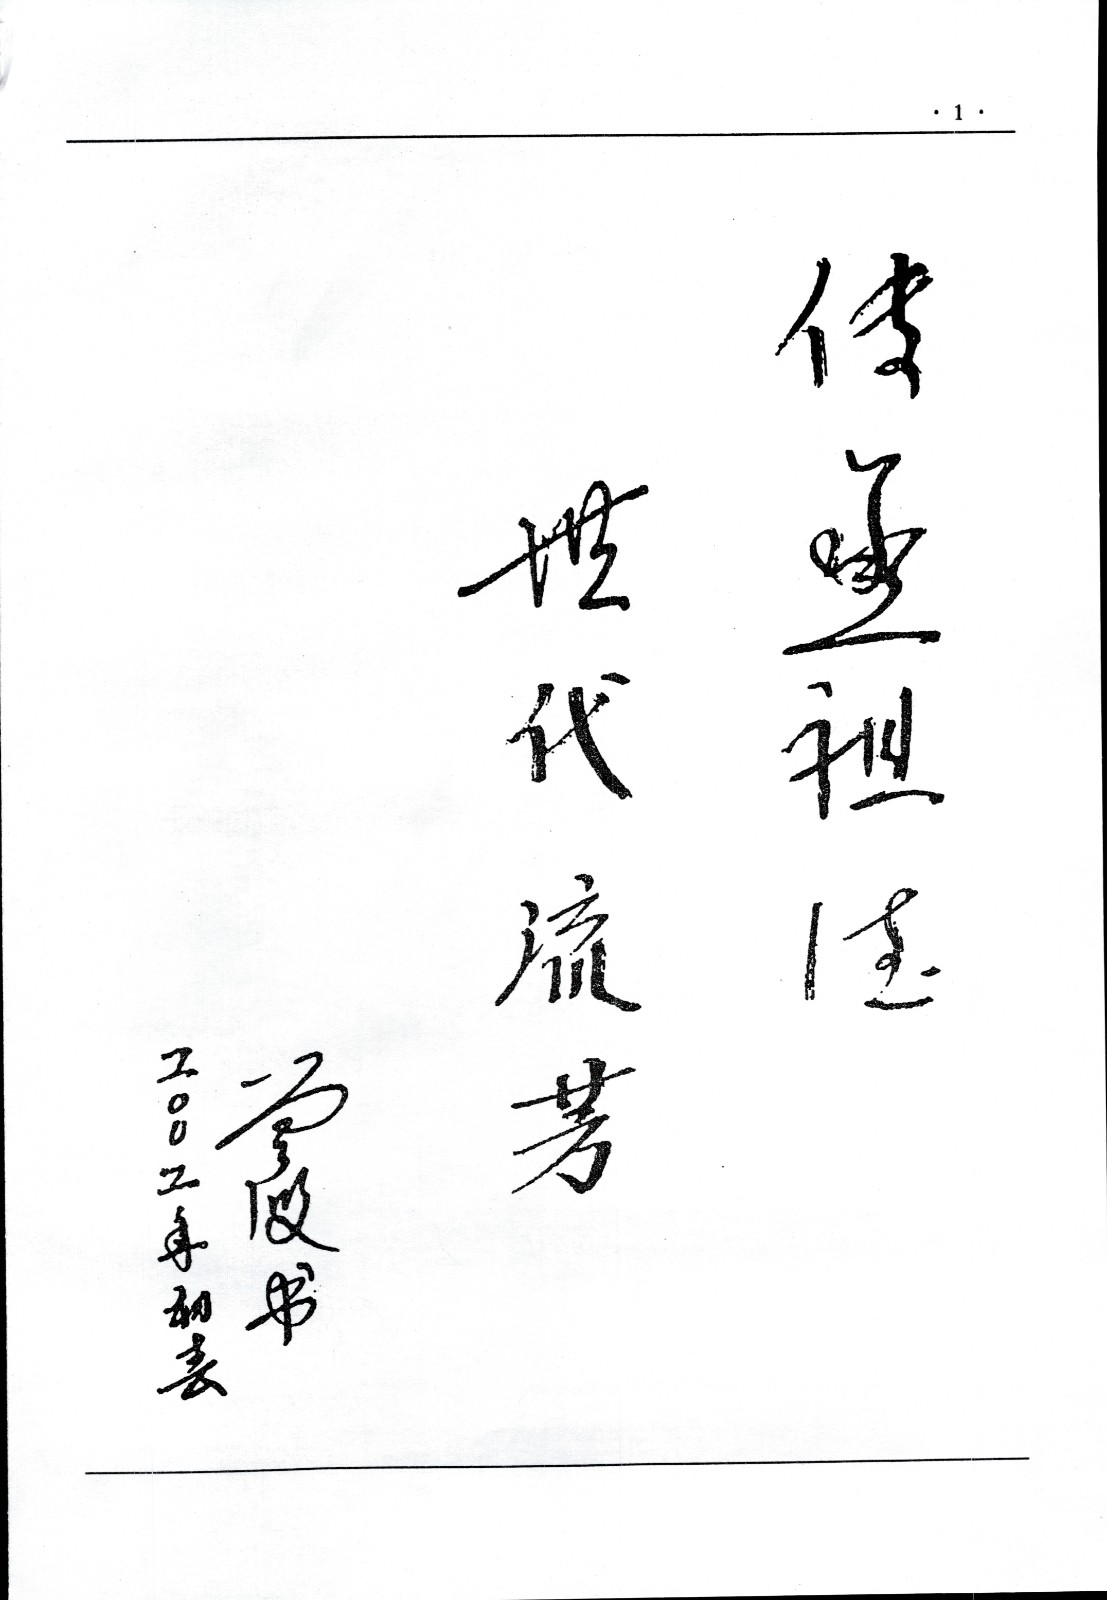 · 1 ·
传承祖德
世代流芳
书
二00二年初春